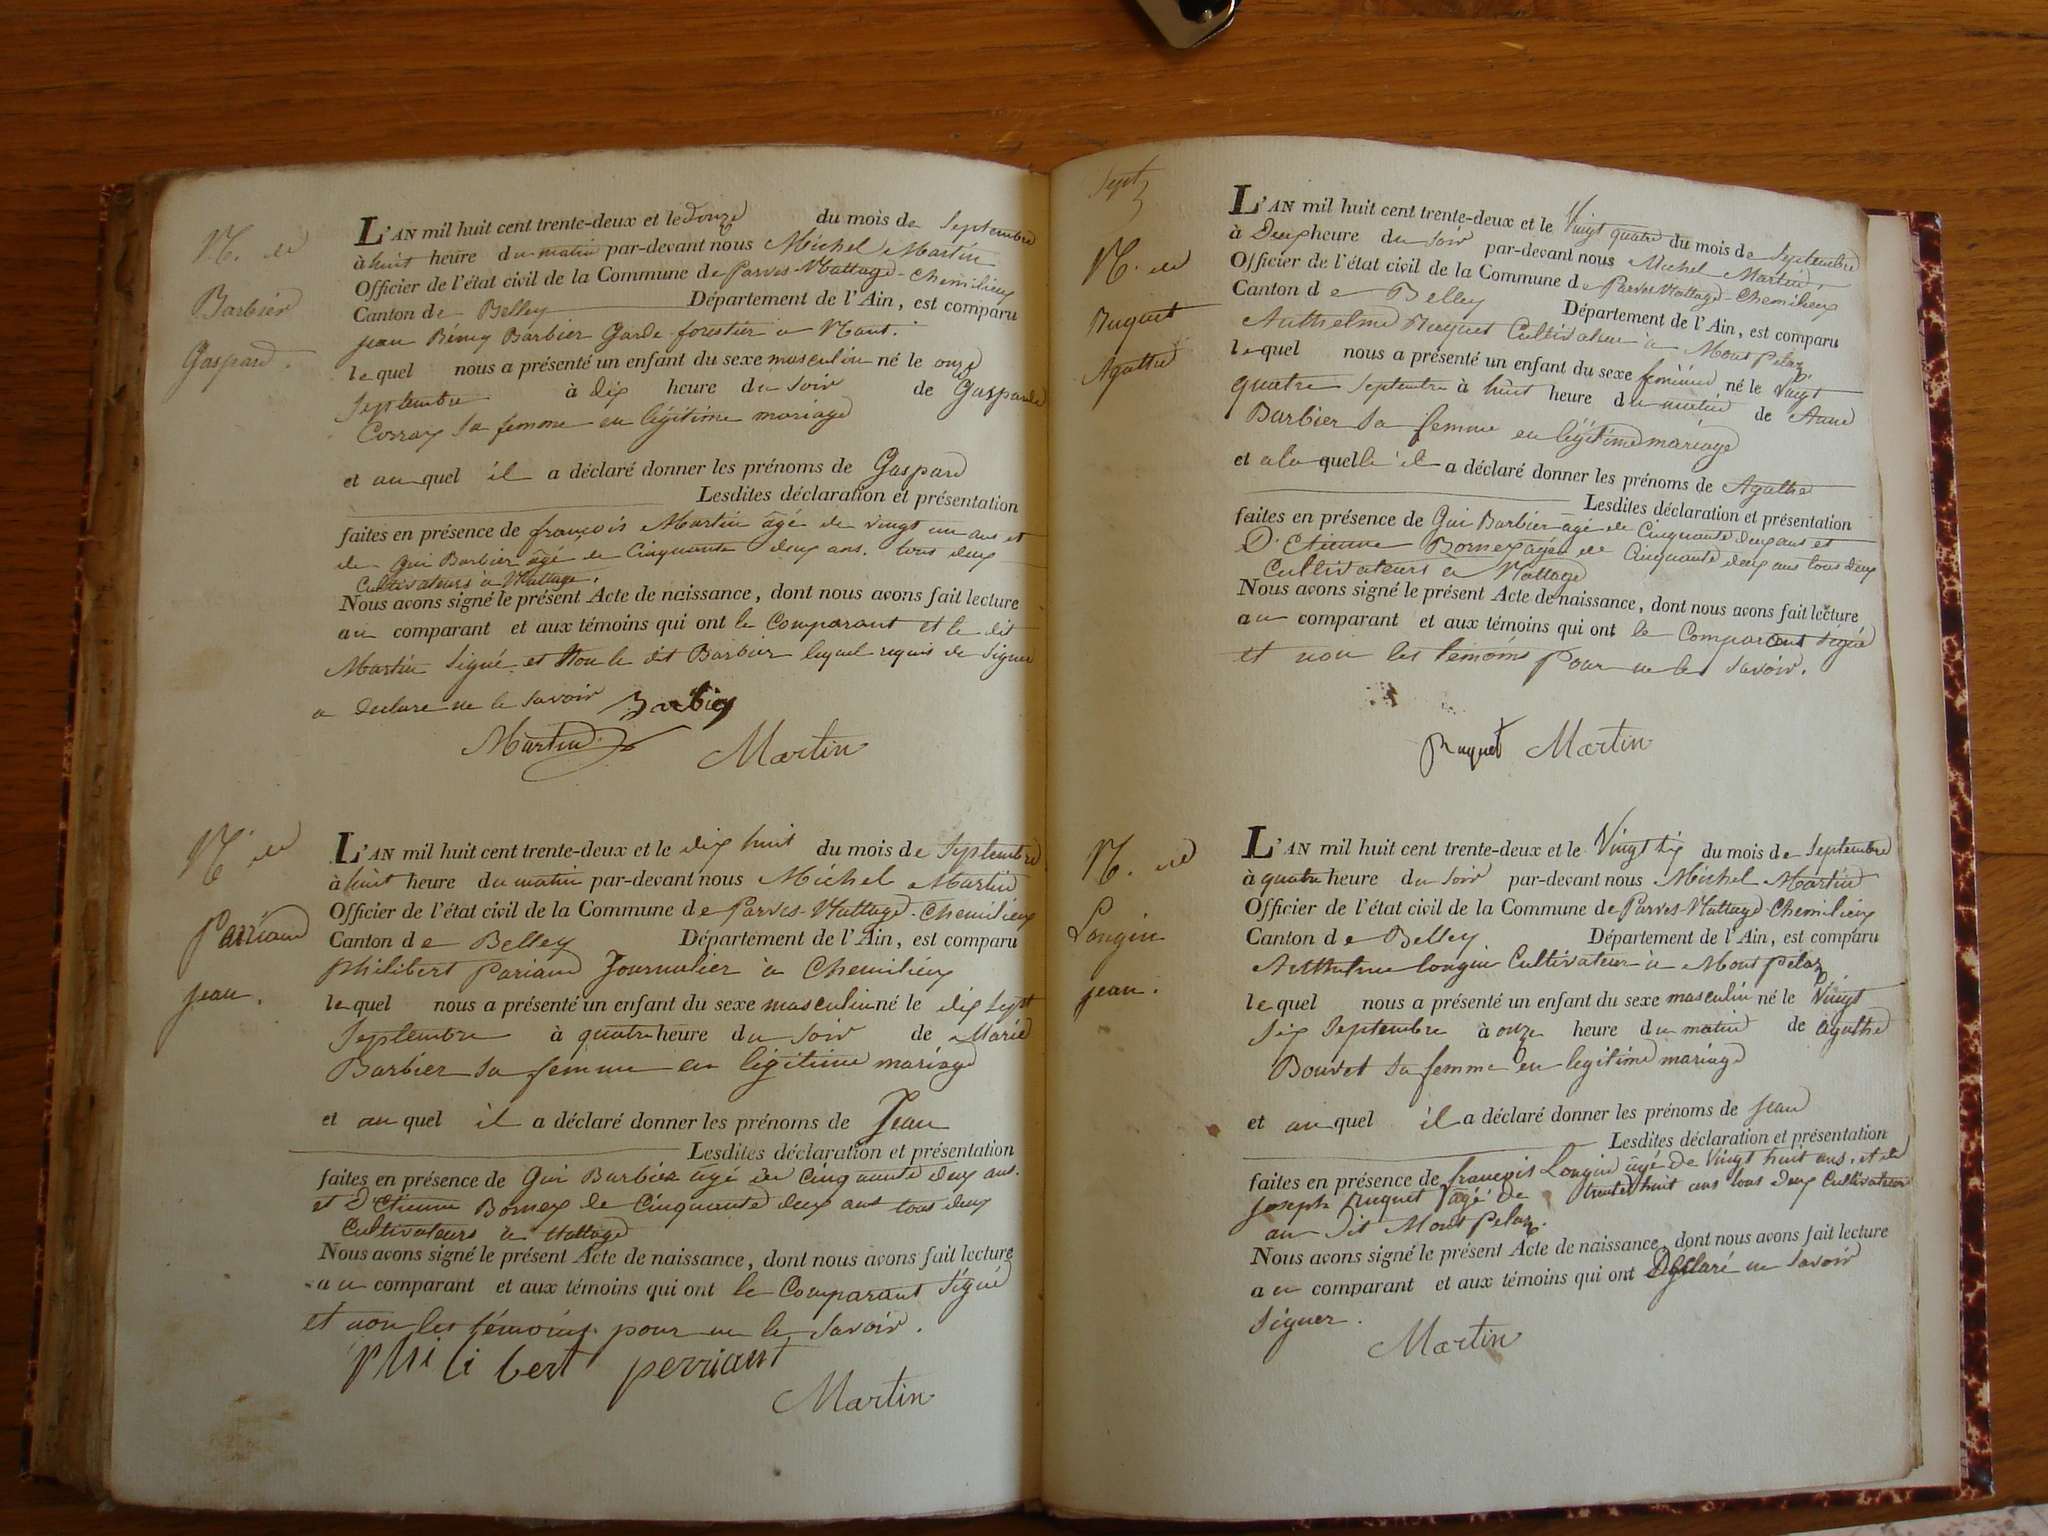 N. de
Barbier
Gaspard.
L'AN mil huit cent trente-deux et le douze du mois de Septembre
à huit heure du matin par-devant nous Michel Martin
Officier de l'état civil de la Commune de Parves-Nattage-Chemilieu
Canton de Belley Département de l'Ain, est comparu
jean Rémy Barbier Garde forestier a Nant.
lequel nous a présenté un enfant du sexe masculin né le onze
Septembre à dix heure du soir de Gasparde
sa femme en légitime mariage
et au quel il a déclaré donner les prénoms de Gaspard
Lesdites déclaration et présentation
faites en présence de françois Martin âgé de vingt un ans et
de Gui Barbier âgé de Cinquante deux ans. tous deux
Cultivateurs à Nattage.
Nous avons signé le présent Acte de naissance, dont nous avons fait lecture
au comparant et aux témoins qui ont le Comparant et le dit
Martin Signé et Non le dit Barbier lequel requis de Signer
a declare ne le savoir Barbier
Martin Martin
N. de
Parriand
jean.
L'AN mil huit cent trente-deux et le dix huit du mois de Septembre
à huit heure du matin par-devant nous Michel Martin
Officier de l'état civil de la Commune de Parves-Nattage-Chemilieu
Canton de Belley Département de l'Ain, est comparu
Philibert Pariand Journalier à Chemilieu
lequel nous a présenté un enfant du sexe masculin né le dix Sept
Septembre à quatre heure du soir de Marie
Barbier sa femme en légitime mariage
et au quel il a déclaré donner les prénoms de Jean
Lesdites déclaration et présentation
faites en présence de Gui Barbier âgé de Cinquante deux ans.
et D'Etienne Bornex de Cinquante deux ans tous deux
Cultivateurs à Nattage
Nous avons signé le présent Acte de naissance, dont nous avons fait lecture
au comparant et aux témoins qui ont le Comparant Signé
et non les témoins pour ne le Savoir.
philibert perriant
Martin
Sept
N. de
Ruquet
Agathe
L'AN mil huit cent trente-deux et le Vingt quatre du mois de Septembre
à Deux heure du soir par-devant nous Michel Martin
Officier de l'état civil de la Commune de Parves-Nattage-Chemilieu
Canton de Belley Département de l'Ain, est comparu
Anthelme Ruquet Cultivateur à Mont pelaz
lequel nous a présenté un enfant du sexe feminin né le Vingt
quatre Septembre à huit heure du matin de Anne
Barbier sa femme en légitime mariage
et a la quelle il a déclaré donner les prénoms de Agathe
Lesdites déclaration et présentation
faites en présence de Gui Barbier âgé de Cinquante deux ans et
D'Etienne Bornex âgé de Cinquante deux ans tous deux
Cultivateurs a Nattage
Nous avons signé le présent Acte de naissance, dont nous avons fait lecture
au comparant et aux témoins qui ont le Comparant signé
et non les témoins pour ne le savoir.
Ruquet Martin
N. de
Longin
jean.
L'AN mil huit cent trente-deux et le Vingt six du mois de Septembre
à quatre heure du soir par-devant nous Michel Martin
Officier de l'état civil de la Commune de Parves-Nattage Chemilieu
Canton de Belley Département de l'Ain, est comparu
Anthelme longin Cultivateur à Mont pelaz
lequel nous a présenté un enfant du sexe masculin né le Vingt
six Septembre à onze heure du matin de agathe
Bouvet sa femme en legitime mariage
et au quel il a déclaré donner les prénoms de jean
Lesdites déclaration et présentation
faites en présence de françois Longin âgé de Vingt huit ans. et de
joseph Ruquet âgé de trente huit ans tous deux Cultivateurs
au dit Mont pelaz.
Nous avons signé le présent Acte de naissance, dont nous avons fait lecture
au comparant et aux témoins qui ont Déclaré ne savoir
signer.
Martin